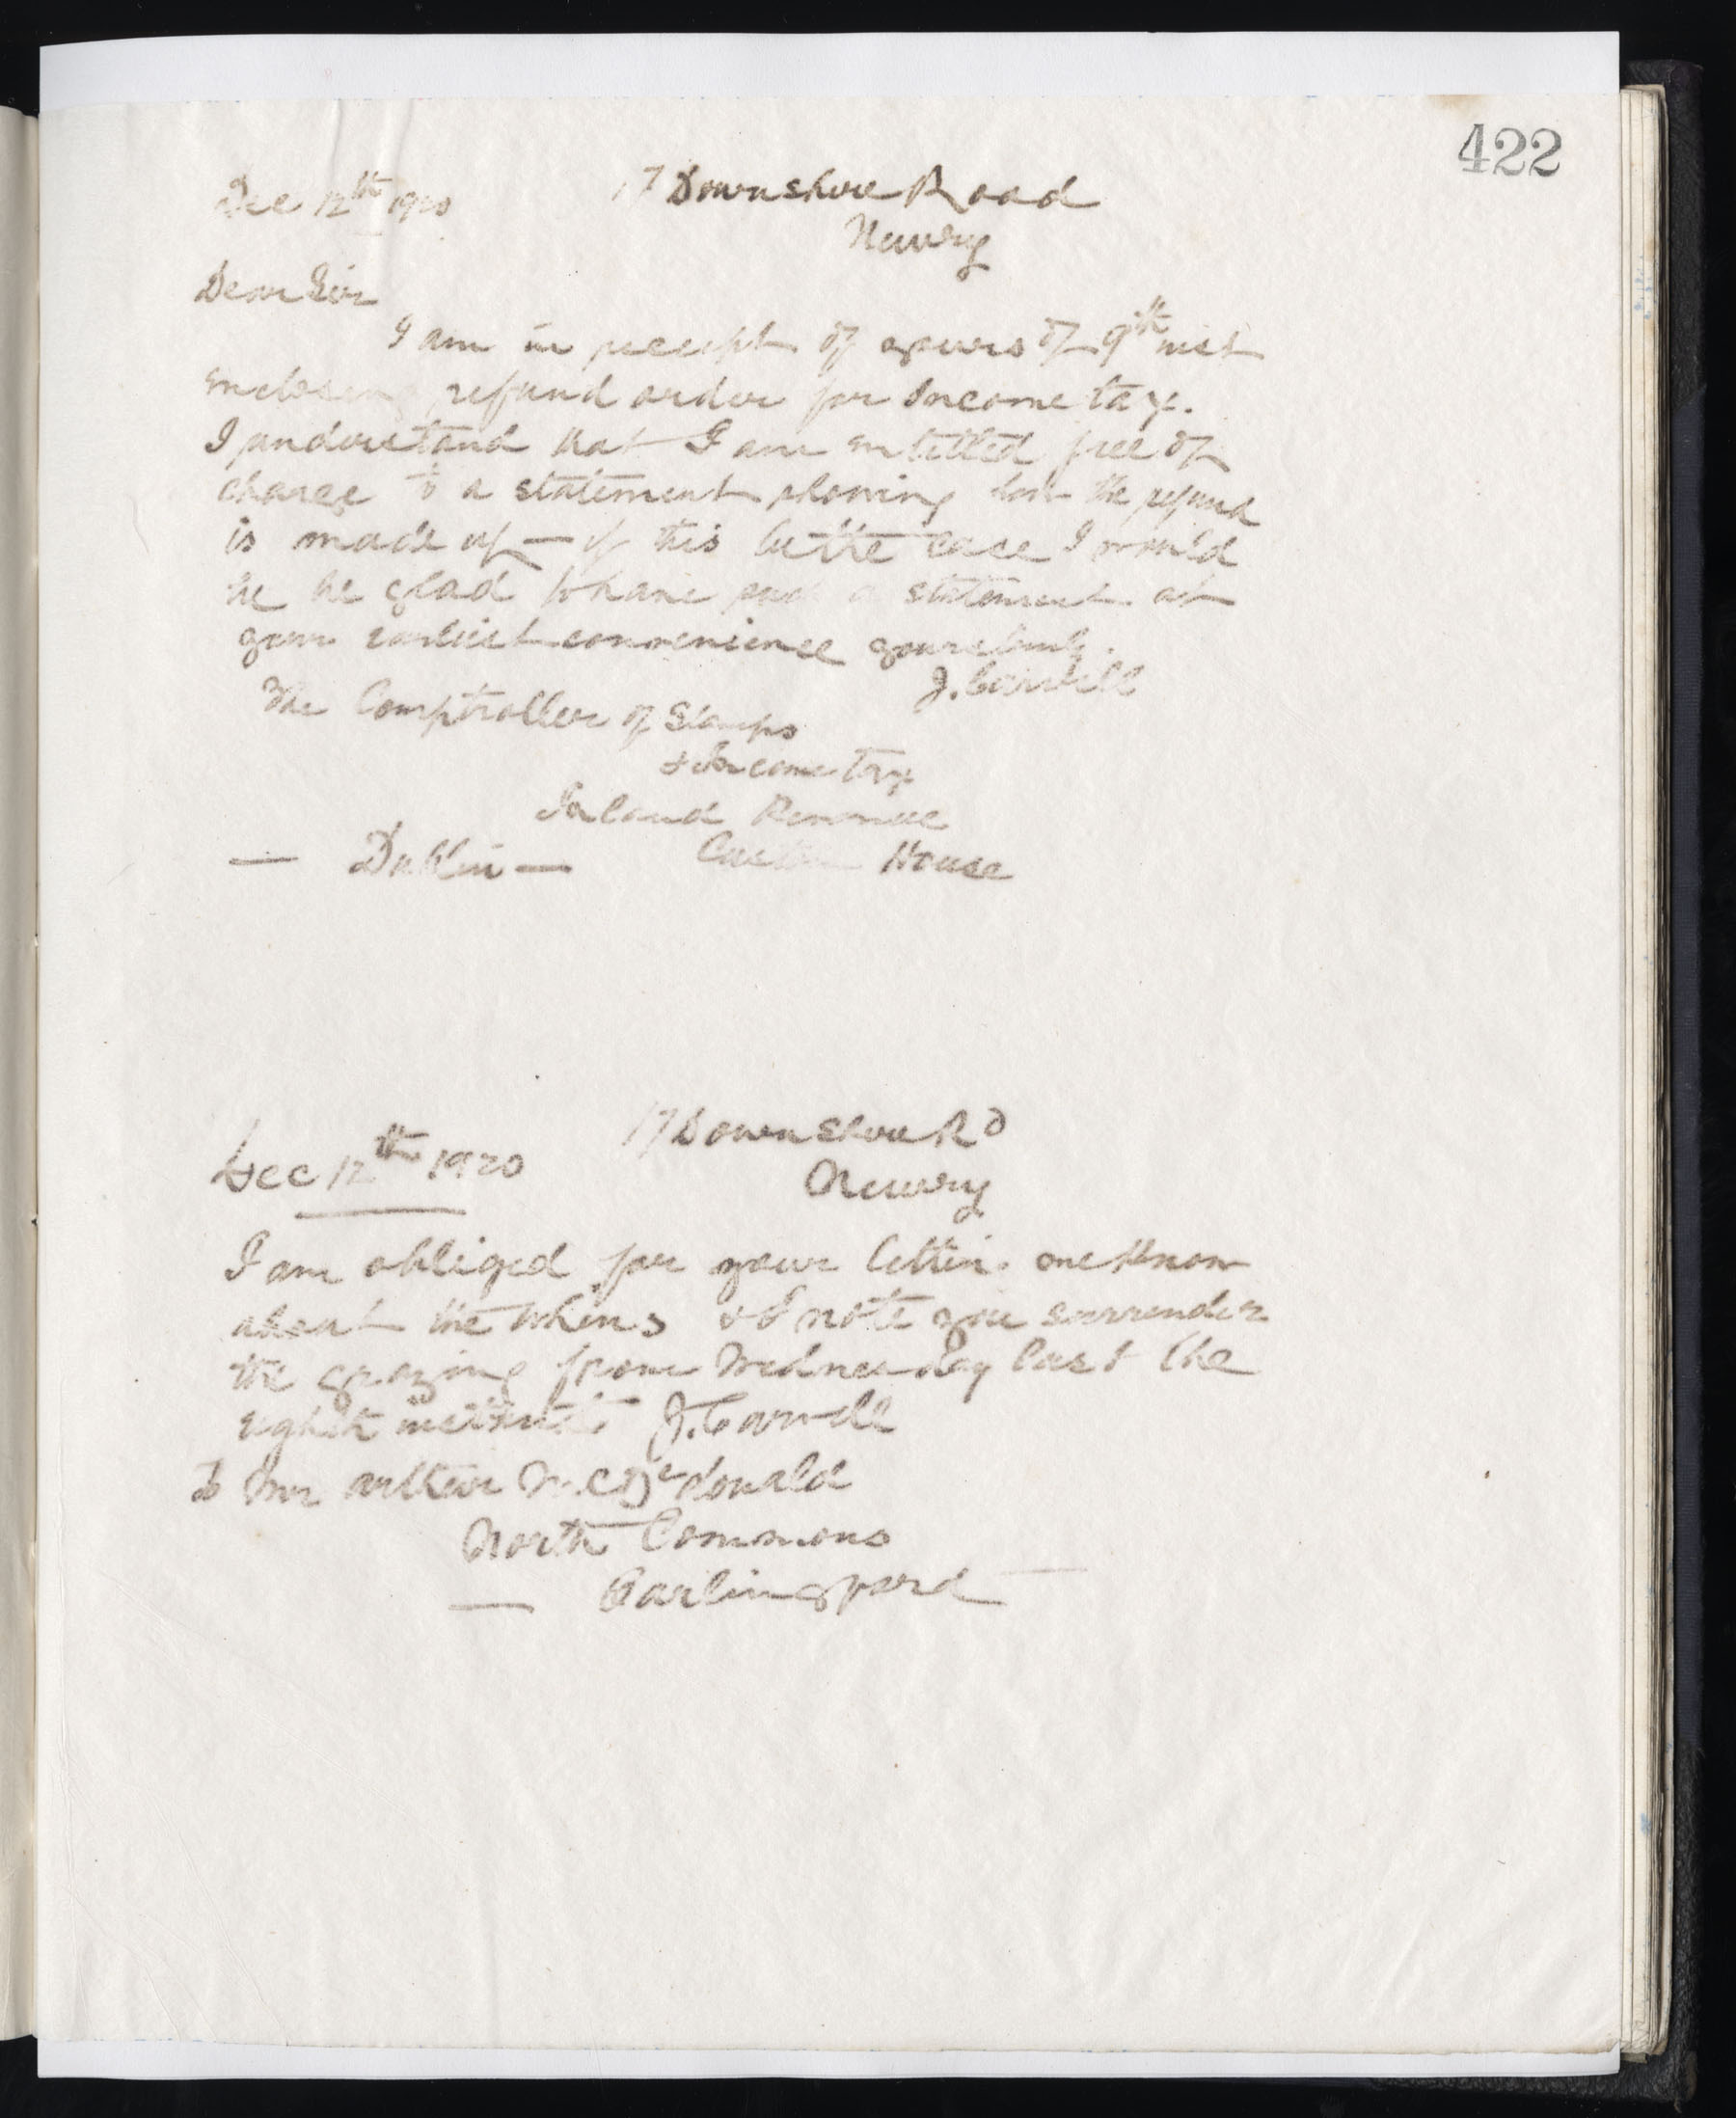 422
Dec 12th 1920 17 Downshire Road
Newry
Dear Sir
I am in receipt of yours of 9th inst
enclosing refund order for Income tax.
I understand that I am entitled free of
charge to a statement showing how the refund
is made up — if this be the case I would
be be glad to have such a statement at
your earliest convenience yours truly.
J. Carvill
The Comptroller of Stamps
& Income Tax
Inland Revenue
— Dublin — Custom House
Dec 12th 1920 17 Downshire Rd
Newry
I am obliged for your letter
about the whins & I note you surrender
the grazing from Wednesday last the
eighth instant J. Carvill
To Mr Arthur McDonald
North Commons
— Carlingford —